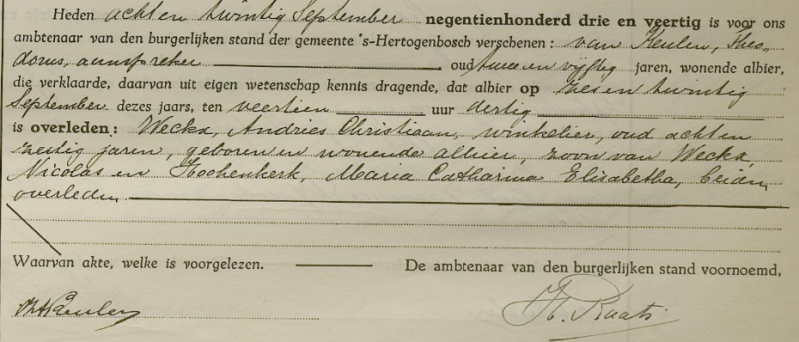 Heden achten twintig September negentienhonderd drie en veertig is voor ons
ambtenaar van den burgerlijken stand der gemeente 's-Hertogenbosch verschenen: van Keulen, Theo-
dorus, aanspreker oud twee en vijftig jaren, wonende albier,
die verklaarde, daarvan uit eigen wetenschap kennis dragende, dat albier op zes en twintig
September dezes jaars, ten veertien uur dertig
is overleden: Weckx, Andries Christiaan, winkelier, oud achten
zestig jaren, geboren en wonende alhier, zoon van Weckx,
Nicolas en Hochenkerk, Maria Catharina Elisabetha, beiden
overleden
Waarvan akte, welke is voorgelezen. De ambtenaar van den burgerlijken stand voornoemd,